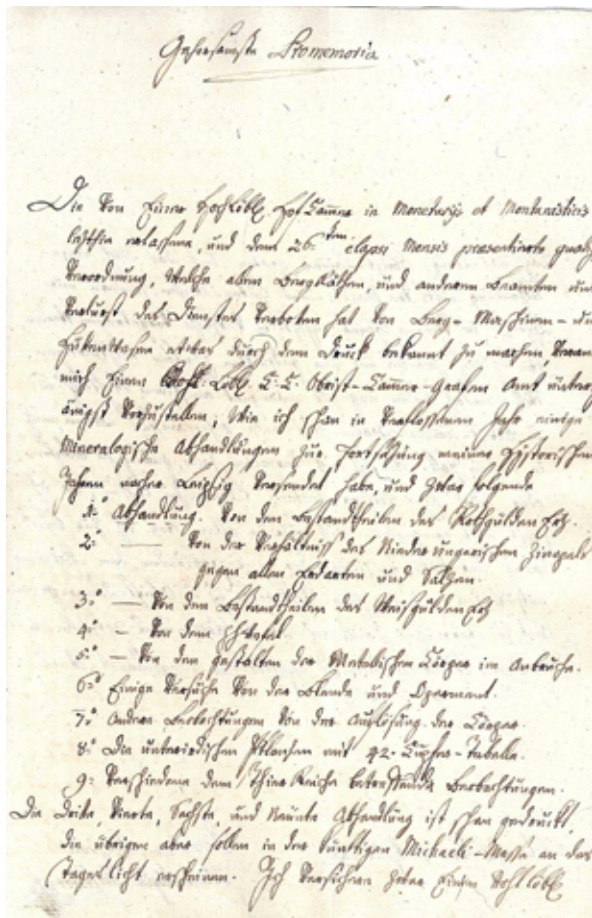 Gehorsamste Promemoria
Die von Einer Hochlöbl. Hof Cammer in Monetariis et Montanisticis
letsthin erlassene, und dem 26.ten elapsi Mensis praesentirte
Verordnung, welche allen BergRäthen, und anderen Beamten
Verlurst des Dienstes Verboten hat von Berg- Maschinen-
Hüttenwesen etwas durch dem Druck bekannt zu machen,
mich Einem Löbl. K. K. Obrist-Cammer-Grafen Amt
Vorzustellen, Wie ich schon in Verflossenen Jahr einige
Mineralogische Abhandlungen zur Fortsetzung meiner Historischen
nacher Leipzig Versendet habe, und zwar folgende
1.o Abhandlung. Von dem Bestandtheilen des Rothgülden Erz.
2.o — Von der Verhältniss des Nieder ungarischen Zinopels
gegen allen Erdarten und Salzen.
3.o — Von dem Bestandtheilen des Weisgülden Erz
4.o — Von dem
5.o — Von dem gestalten der Metalischen Cörper im Anbruche.
6.o Einige Versuche Von der Blende und Operment.
7.o Andere Beobachtungen Von der Auflösung der Cörper.
8.o Die unterirdischen Pflanzen mit 42. Kupfer-Tabelle.
9.o Verschiedene dem Thier Reiche betreffende Beobachtungen.
Die Dritte, Vierte, Sechste, und Neunte Abhandlung ist schon gedruckt,
die übrigen aber sollen in der künftigen Michaeli-Messe an das
Tageslicht erscheinen. Ich Versichere Einem Wohl löbl